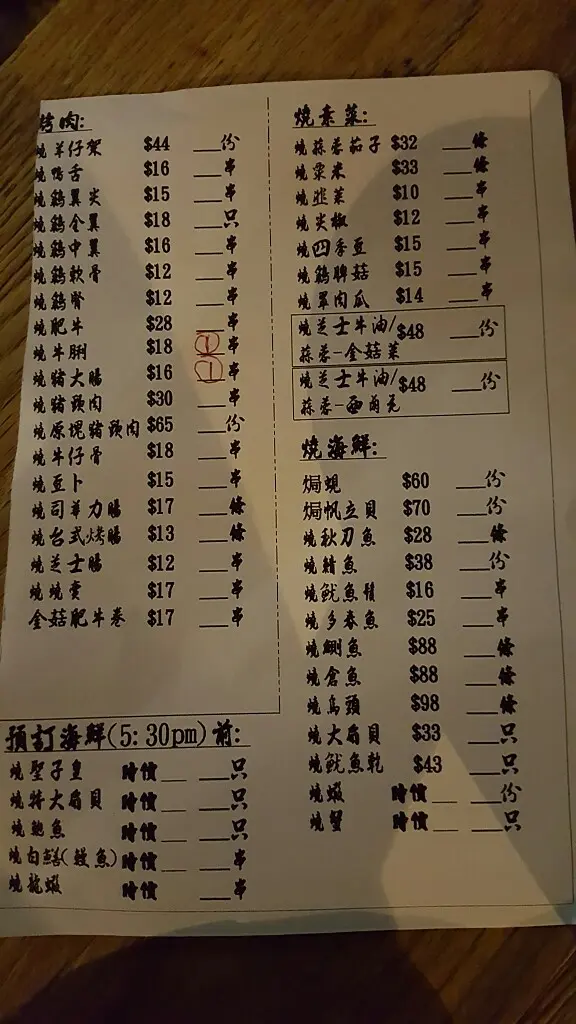 烤肉:
燒羊仔架 $44 __份
燒鴨舌 $16 __串
燒鷄翼尖 $15 __串
燒鷄全翼 $18 __只
燒鷄中翼 $16 __串
燒鷄軟骨 $12 __串
燒鷄腎 $12 __串
燒肥牛 $28 __串
燒牛脷 $18 1 串
燒豬大腸 $16 1 串
燒豬頸肉 $30 __串
燒原塊豬頸肉 $65 __份
燒牛仔骨 $18 __串
燒豆卜 $15 __串
燒司華力腸 $17 __條
燒台式烤腸 $13 __條
燒芝士腸 $12 __串
燒墨 $17 __串
金菇肥牛卷 $17 __串
預訂海鮮(5:30pm)前:
燒聖子皇 時價__ __只
燒特大扇貝 時價__ __只
燒鮑魚 時價__ __只
燒白鱔(鰻魚) 時價__ __串
燒龍蝦 時價__ __串
燒素菜:
燒蒜蓉茄子 $32 __條
燒粟米 $33 __條
燒韭菜 $10 __串
燒尖椒 $12 __串
燒四季豆 $15 __串
燒鷄脾菇 $15 __串
燒翠肉瓜 $14 __串
燒芝士牛油/ $48 __份
蒜蓉-金菇菜
燒芝士牛油/ $48 __份
蒜蓉-西蘭花
燒海鮮:
焗蜆 $60 __份
焗帆立貝 $70 __份
燒秋刀魚 $28 __條
燒鯖魚 $38 __份
燒魷魚鬚 $16 __串
燒多春魚 $25 __串
燒鯏魚 $88 __條
燒倉魚 $88 __條
燒烏頭 $98 __條
燒大扇貝 $33 __只
燒魷魚乾 $43 __只
燒蝦 時價__ __份
燒蟹 時價__ __只